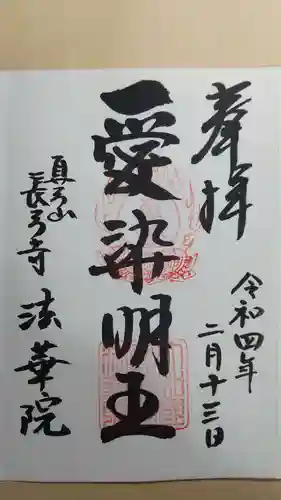 奉拝
令和四年
二月十三日
愛染明王
真弓山
長弓寺
法華院